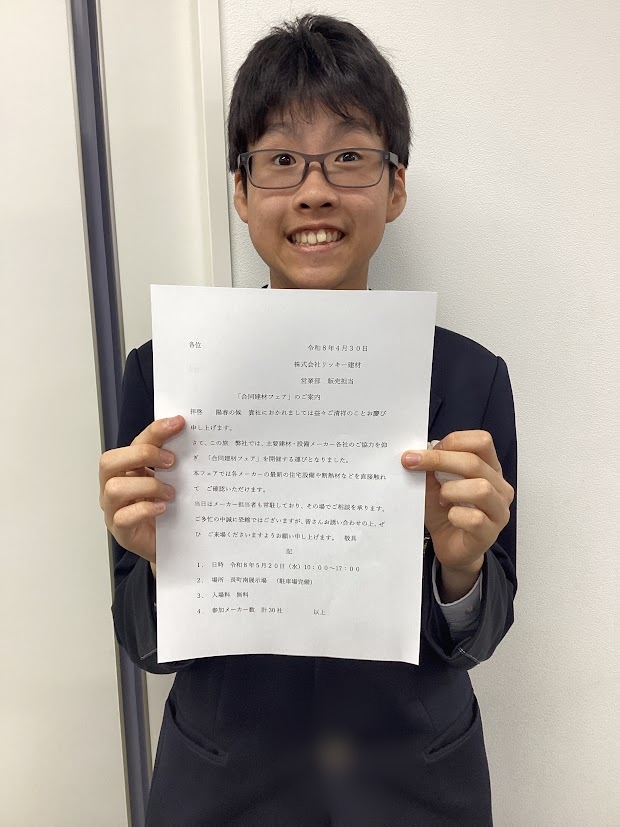 各位
令和8年4月30日
株式会社リッキー建材
営業部　販売担当
「合同建材フェア」のご案内
拝啓　陽春の候　貴社におかれましては益々ご清祥のことお慶び
申し上げます。
さて、この旅　弊社では、主要建材・設備メーカー各社のご協力を仰
ぎ　「合同建材フェア」を開催する運びとなりました。
本フェアでは各メーカーの最新の住宅設備や断熱材などを直接触れ
て　ご確認いただけます。
当日はメーカー担当者も常駐しており、その場でご相談を承ります。
ご多忙の中誠に恐縮ではございますが、皆さんお誘い合わせの上、ぜ
ひ　ご来場くださいますようお願い申し上げます。　敬具
記
1．　日時　令和8年5月20日（水）10：00～17：00
2．　場所　長町南展示場　（駐車場完備）
3．　入場料　無料
4．　参加メーカー数　計30社　　　以上